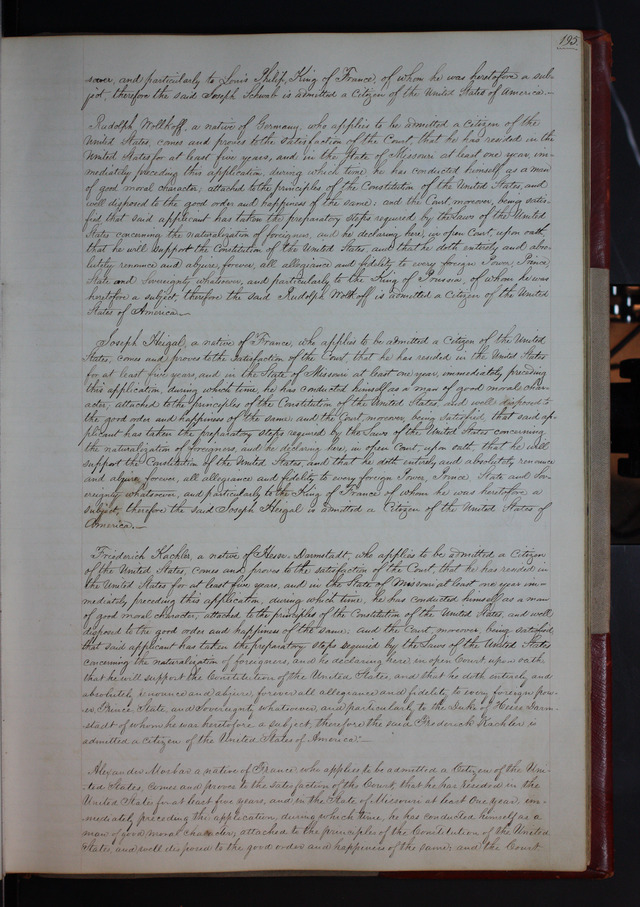 195.
and particularly to Louis Philip, King of France, of whom he was heretofore a sub-
ject, therefore the said Joseph Schwab is admitted a Citizen of the United States of America.—
Rudolph Wolkhoff, a native of Germany, who applies to be admitted a Citizen of the
United States, comes and proves to the satisfaction of the Court, that he has resided in the
United States for at least five years, and in the State of Missouri at least one year, im-
mediately preceding this application, during which time, he has conducted himself as a man
of good moral character; attached to the principles of the Constitution of the United States, and
well disposed to the good order and happiness of the same; and the Court moreover, being satis-
fied, that said applicant has taken the preparatory steps required by the Laws of the United
States concerning the naturalization of foreigners, and he declaring here, in open Court, upon oath,
that he will support the Constitution of the United States, and that he doth entirely and abso-
lutely renounce and abjure, forever, all allegiance and fidelity to every foreign Power, Prince,
State and Sovereignty whatever, and particularly to the King of Prussia, of whom he was
heretofore a subject, therefore the said Rudolph Wolkhoff is admitted a Citizen of the United
States of America.—
Joseph Heigal, a native of France, who applies to be admitted a Citizen of the United
States, comes and proves to the satisfaction of the Court, that he has resided in the United States
for at least five years, and in the State of Missouri at least one year, immediately preceding
this application, during which time, he has conducted himself as a man of good moral char-
acter, attached to the principles of the Constitution of the United States, and well disposed to
the good order and happiness of the same, and the Court, moreover, being satisfied, that said ap-
plicant has taken the preparatory steps required by the Laws of the United States concerning
the naturalization of foreigners, and he declaring here, in open Court, upon oath, that he will
support the Constitution of the United States, and that he doth entirely and absolutely renounce
and abjure, forever, all allegiance and fidelity to every foreign Power, Prince, State and Sov-
ereignty whatsoever, and particularly to the King of France of whom he was heretofore a
subject, therefore the said Joseph Heigal is admitted a Citizen of the United States of
America.—
Friederich Kachler, a native of Hesse-Darmstadt, who applies to be admitted a Citizen
of the United States, comes and proves to the satisfaction of the Court, that he has resided in
the United States for at least five years, and in the State of Missouri at least one year im-
mediately preceding this application, during which time, he has conducted himself as a man
of good moral character, attached to the principles of the Constitution of the United States, and well
disposed to the good order and happiness of the same; and the Court, moreover, being satisfied,
that said applicant has taken the preparatory steps required by the Laws of the United States
concerning the naturalization of foreigners, and he declaring here in open Court upon oath,
that he will support the Constitution of the United States, and that he doth entirely and
absolutely renounce and abjure, forever all allegiance and fidelity to every foreign pow-
er, Prince, State and Sovereignty whatsoever, and particularly to the Duke of Hesse Darm-
stadt of whom he was heretofore a subject, therefore the said Frederick Kachler is
admitted a Citizen of the United States of America.—
Alexander a native of France, who applies to be admitted a Citizen of the Uni-
ted States, comes and proves to the satisfaction of the Court, that he has resided in the
United States for at least five years, and in the State of Missouri at least One year, im-
mediately preceding the application, during which time, he has conducted himself as a
man of good moral character, attached to the principles of the Constitution of the United
States, and well disposed to the good order and happiness of the same; and the Court